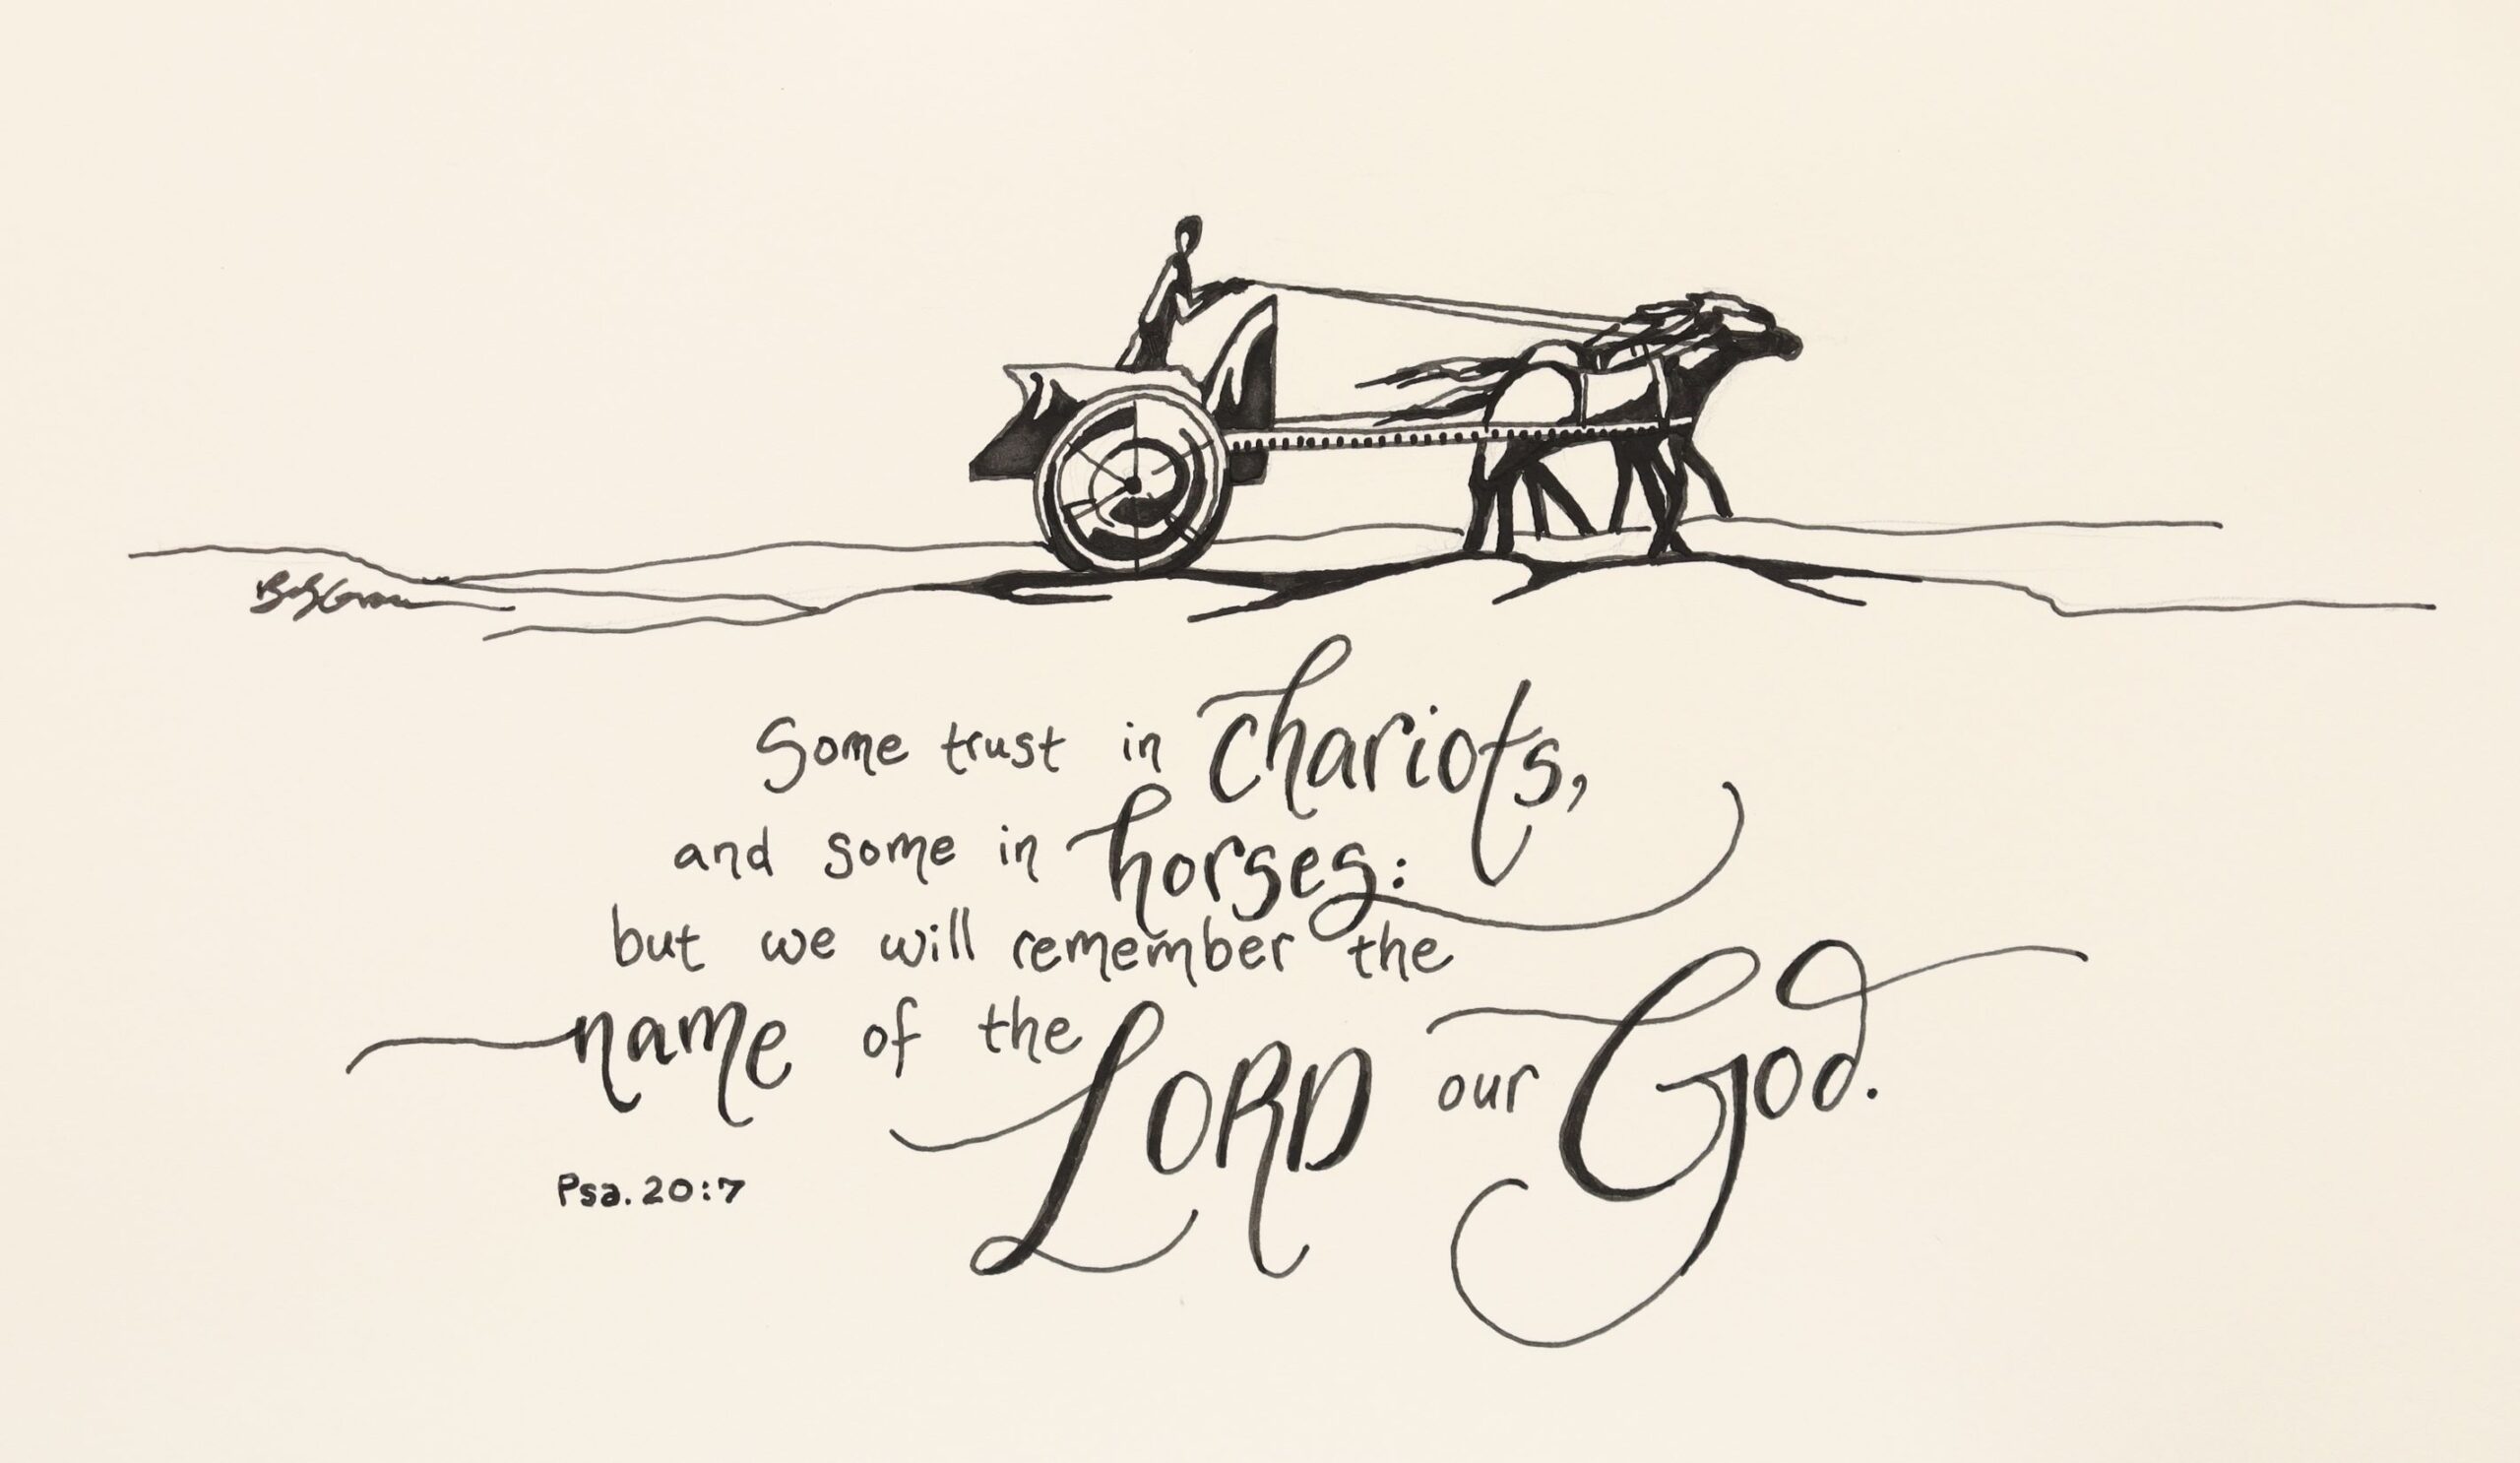 Some trust in chariots,
and some in horses:
but we will remember the
name of the LORD our God.
Psa. 20:7